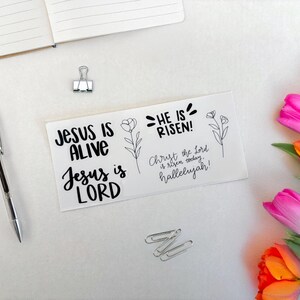 JESUS IS
ALIVE
Jesus is
LORD
HE IS
RISEN!
Christ the Lord
is risen today
hallelujah!